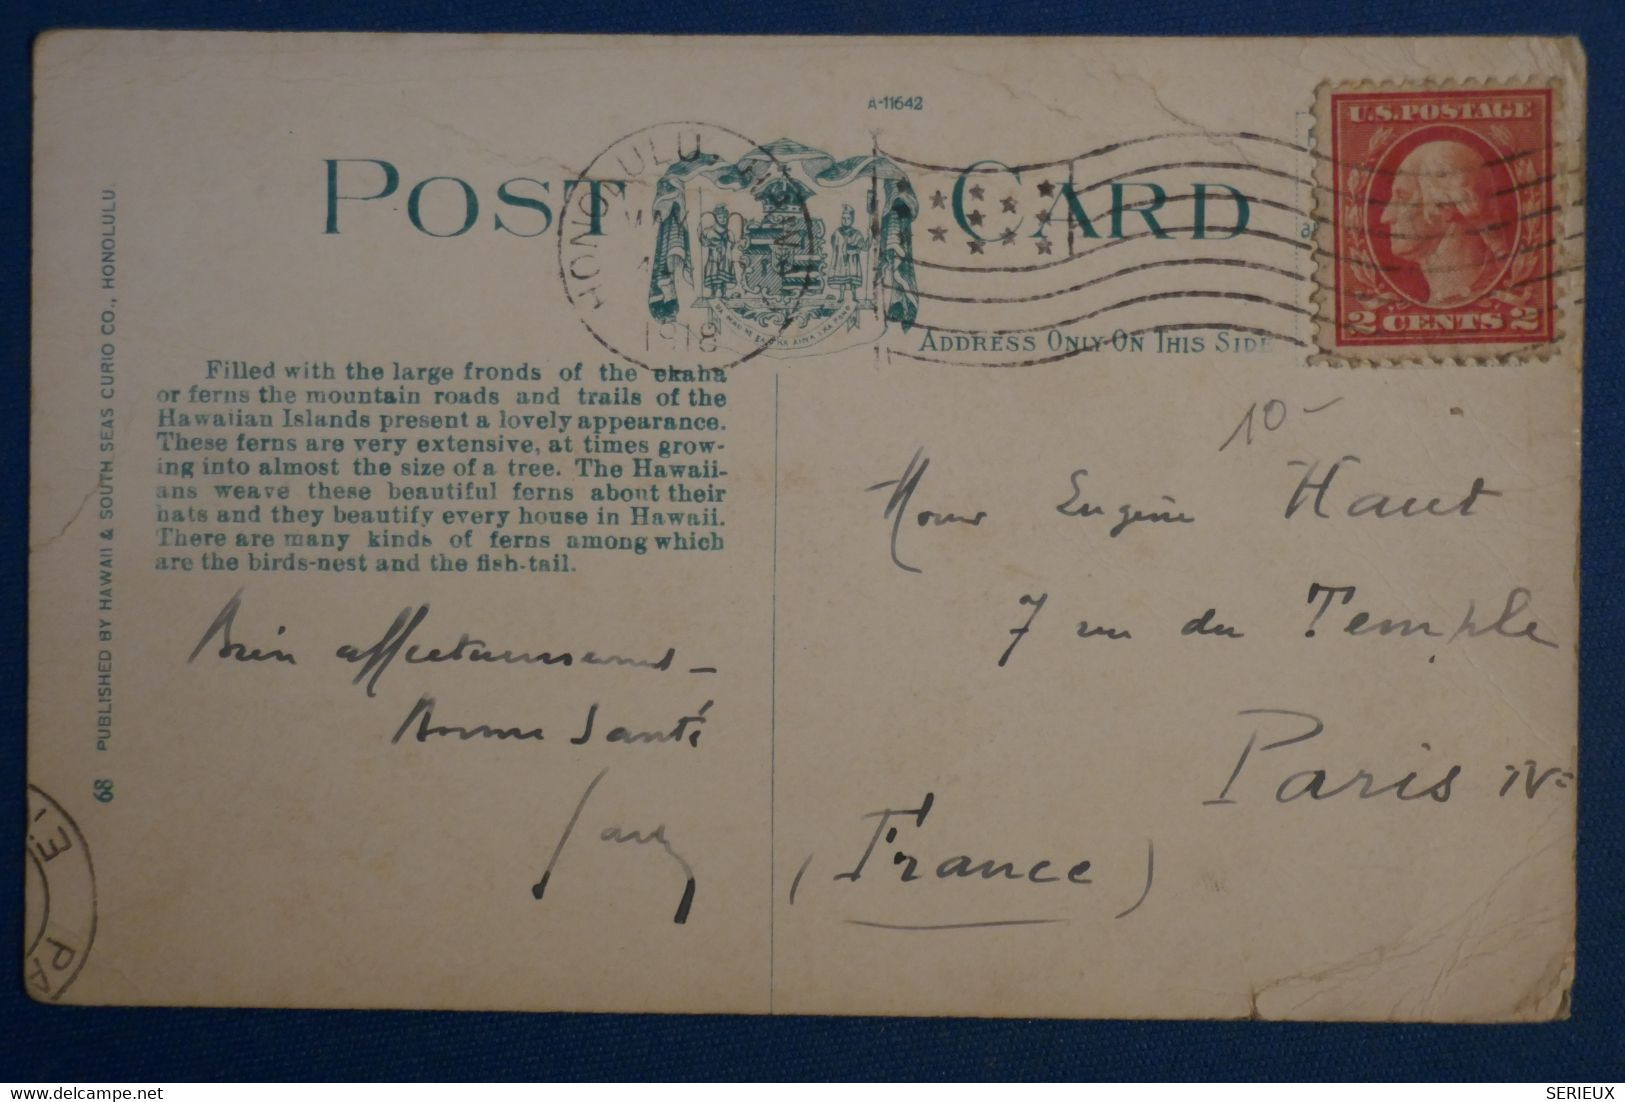 A-11642
POST CARD
HONOLULU, HAWAII
MAY 20
1918
U.S. POSTAGE
2 CENTS 2
ADDRESS ONLY ON THIS SIDE
68 PUBLISHED BY HAWAII & SOUTH SEAS CURIO CO., HONOLULU.
Filled with the large fronds of the ekaha
or ferns the mountain roads and trails of the
Hawaiian Islands present a lovely appearance.
These ferns are very extensive, at times grow-
ing into almost the size of a tree. The Hawaii-
ans weave these beautiful ferns about their
hats and they beautify every house in Hawaii.
There are many kinds of ferns among which
are the birds-nest and the fish-tail.
Bien affectueusement -
Bonne Santé
10-
Eugène Haut
7 rue du Temple
Paris IV=
(France)
SERIEUX